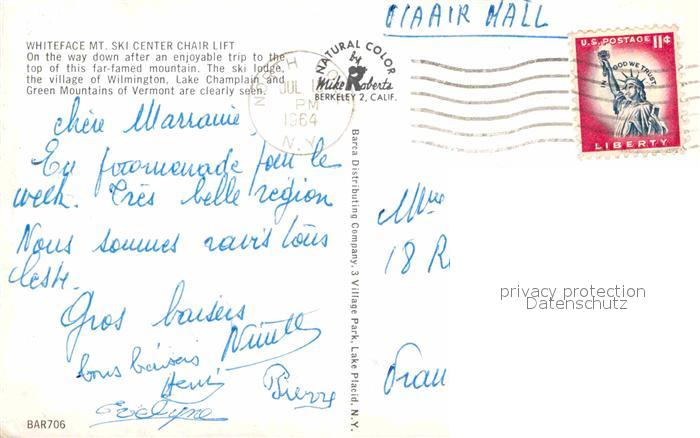 WHITEFACE MT. SKI CENTER CHAIR LIFT
On the way down after an enjoyable trip to the
top of this far-famed mountain. The ski lodge,
the village of Wilmington, Lake Champlain and
Green Mountains of Vermont are clearly seen.
NATURAL COLOR
by
Mike Roberts
BERKELEY 2, CALIF.
JUL
PM
1964
N.Y.
VIA AIR MAIL
U.S. POSTAGE 11¢
IN GOD WE TRUST
LIBERTY
Chère Marraine,
En promenade pour le
week. Très belle région
Nous sommes ravis tous
Gros baisers
bons baisers
Henri
Pierre
Evelyne
Barca Distributing Company, 3 Village Park, Lake Placid, N.Y.
Mme
18 R
privacy protection
Datenschutz
Fran
BAR706